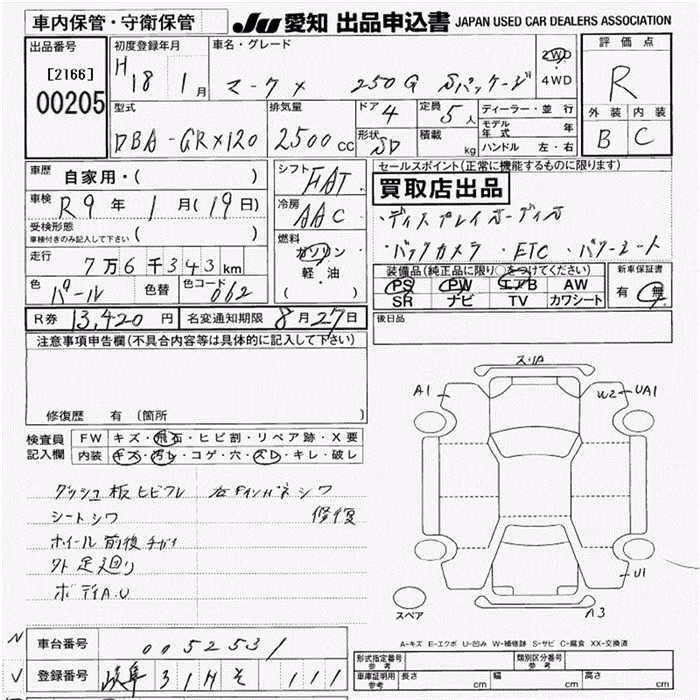 車内保管・守衛保管
JU 愛知 出品申込書 JAPAN USED CAR DEALERS ASSOCIATION
出品番号
[2166]
00205
初度登録年月
H18 1月
車名・グレード
マークX 250G Sパッケージ
2WD
4WD
評価点
R
外装 内装
B C
型式
DBA-GRX120
排気量
2500cc
ドア 4
形状 SD
定員 5人
積載 kg
ディーラー・並行
モデル年式 年
ハンドル 左・右
車歴 自家用・( )
車検 R9年 1月(19日)
受検形態
車検付きのみ記入して下さい ( )
走行 7万6千343km
色 パール 色替 色コード 062
シフト FAT
冷房 AAC
燃料
ガソリン
軽・油
( )
セールスポイント(正常に機能するものに限ります)
買取店出品
・ディスプレイオーディオ
・バックカメラ ・ETC ・パワーシート
装備品(純正品に限り○をつけてください)
PS PW エアB AW
SR ナビ TV カワシート
新車保証書
有・無
後日品
R券 13,420円 名変通知期限 8月27日
注意事項申告欄(不具合内容等は具体的に記入して下さい)
修復歴 有(箇所 )
検査員記入欄
FW キズ・飛石・ヒビ割・リペア跡・X要
内装 キズ・汚レ・コゲ・穴・スレ・キレ・破レ
ダッシュ板ヒビワレ 右Fインパネシワ
シートシワ 修復
ホイール前後チガイ
外足廻り
ボディA.U
スリP
A1
W2 UA1
U1
A3
スペア
A-キズ E-エクボ U-凹み W-補修跡 S-サビ C-腐食 XX-交換済
N 車台番号 0052531
V 登録番号 岐阜 314 そ 111
形式指定番号 参考
類別区分番号 参考
車庫証明用 参考 長さ cm 幅 cm 高さ cm